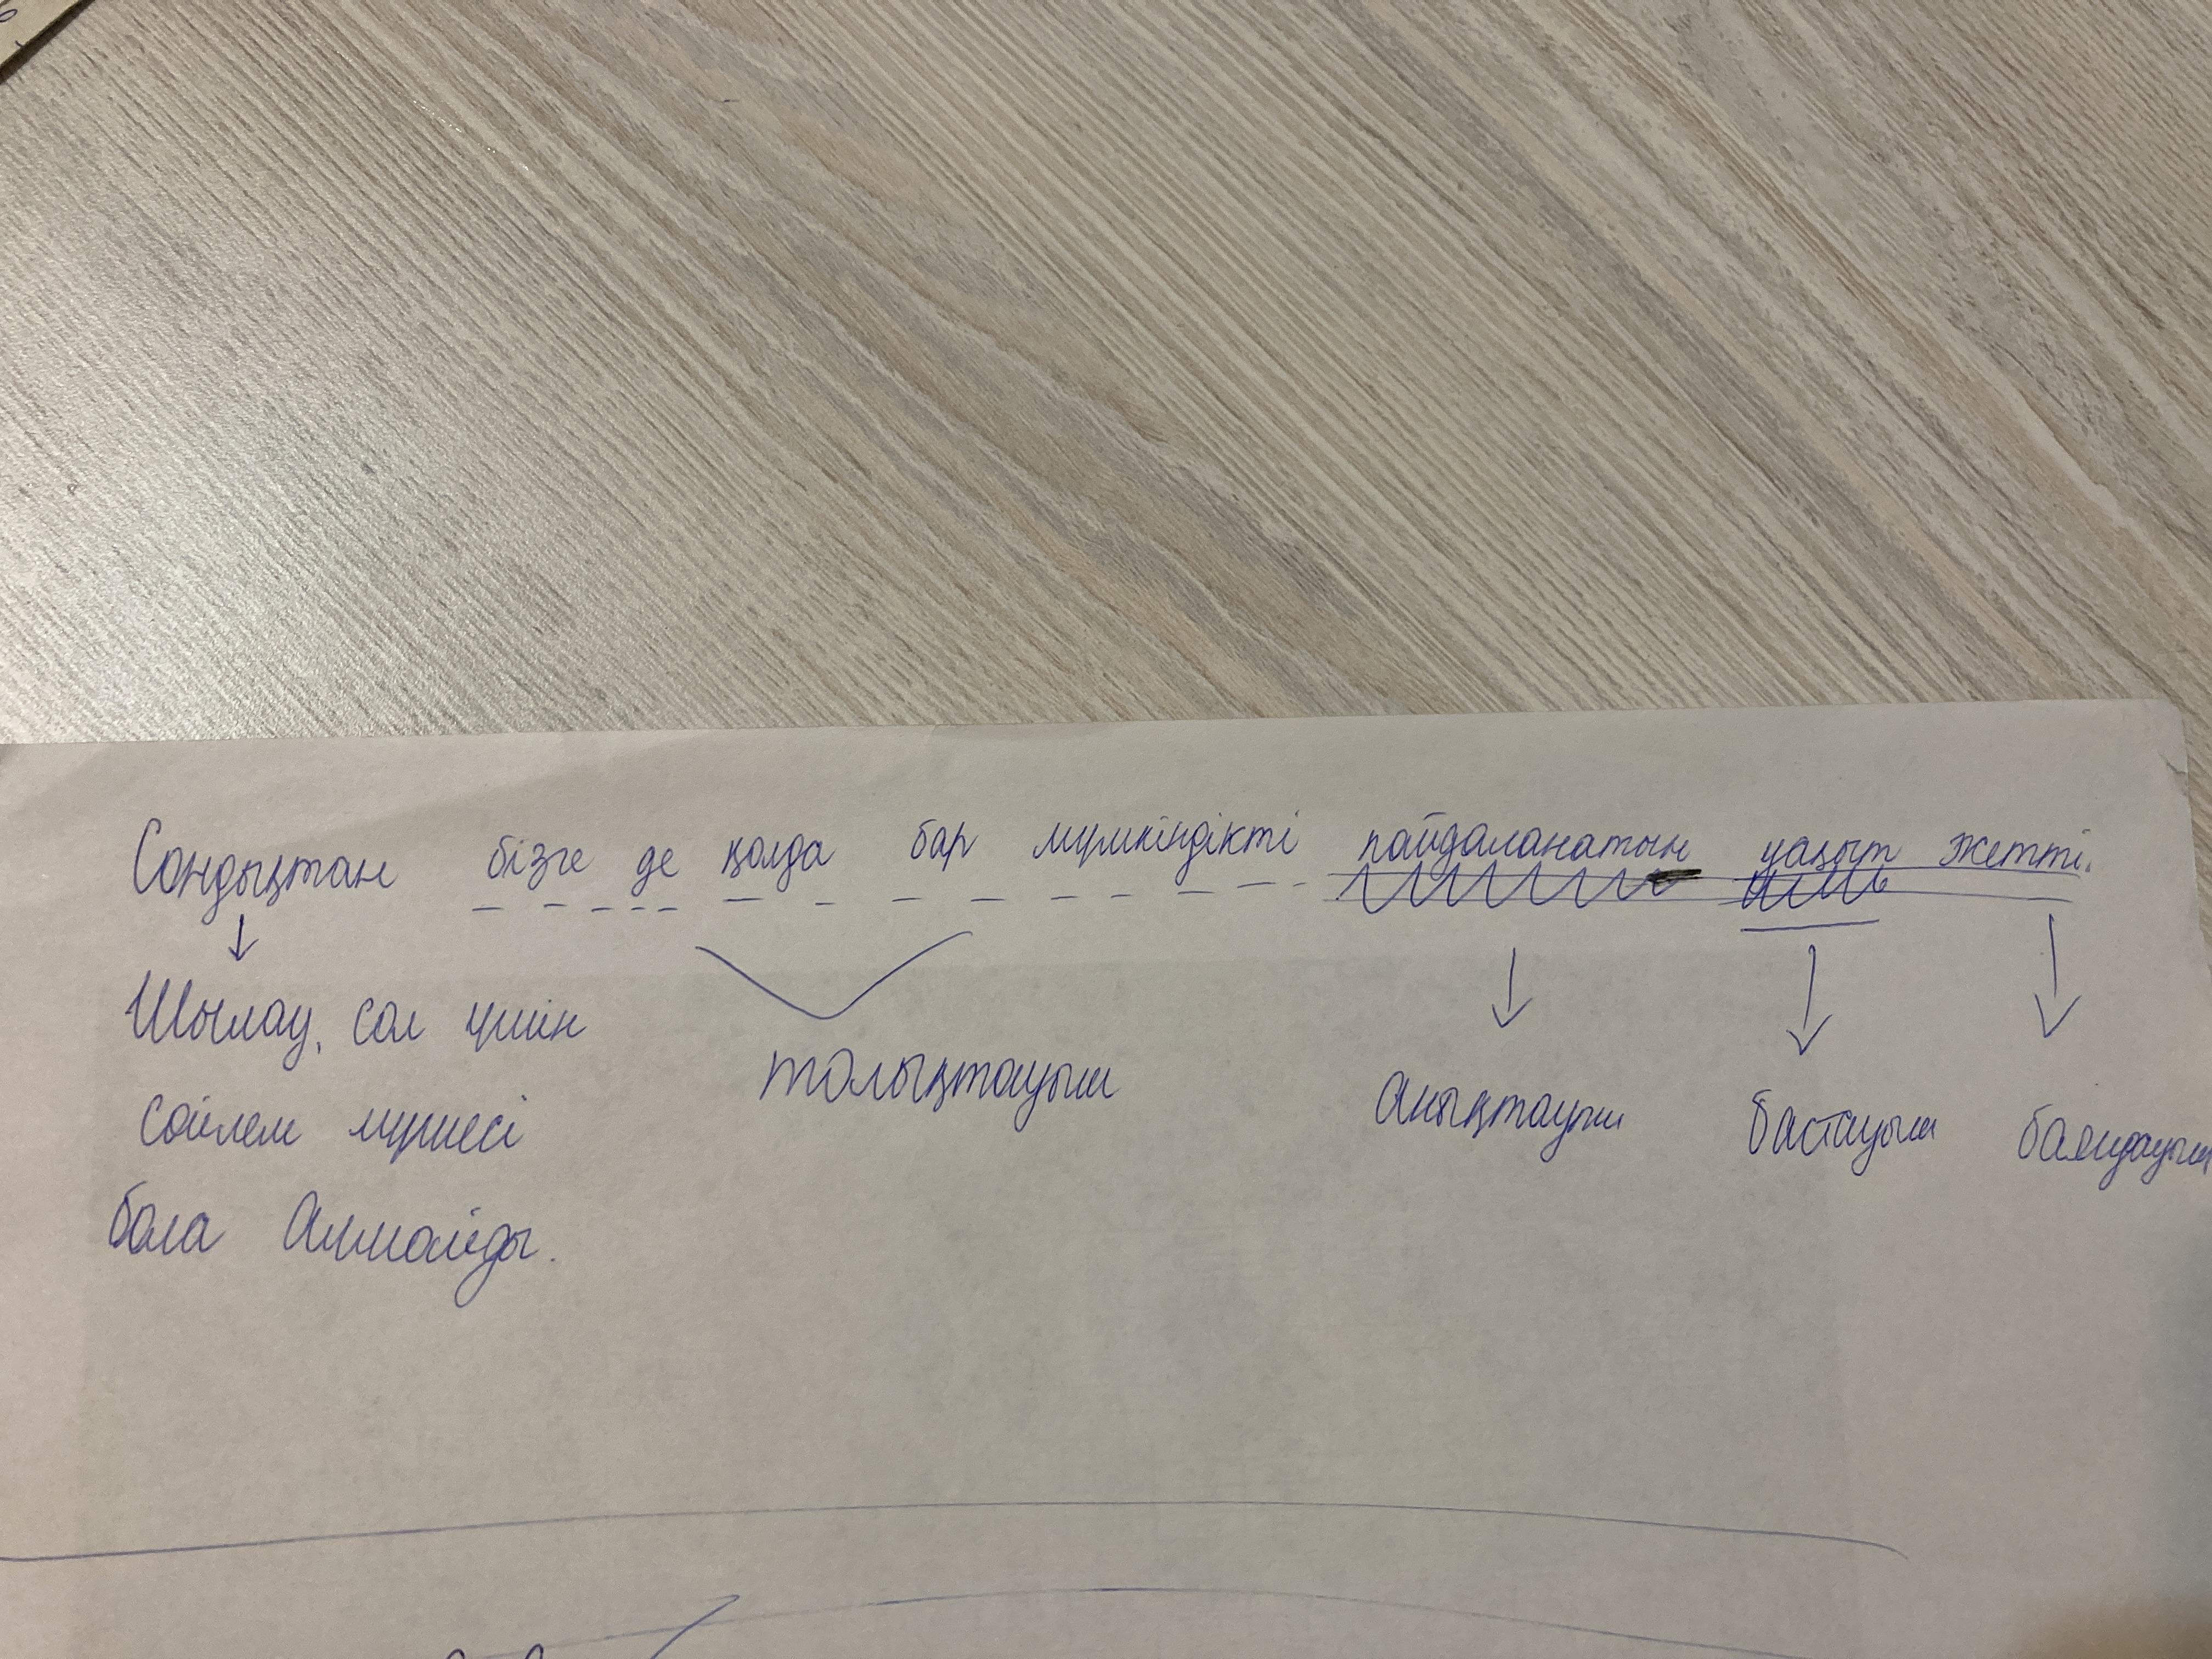 Сондықтан бізге де қолда бар мүмкіндікті пайдаланатын уақыт жетті.
Шылау, сол үшін
сөйлем мүшесі
бола алмайды.
толықтауыш
анықтауыш
бастауыш
баяндауыш